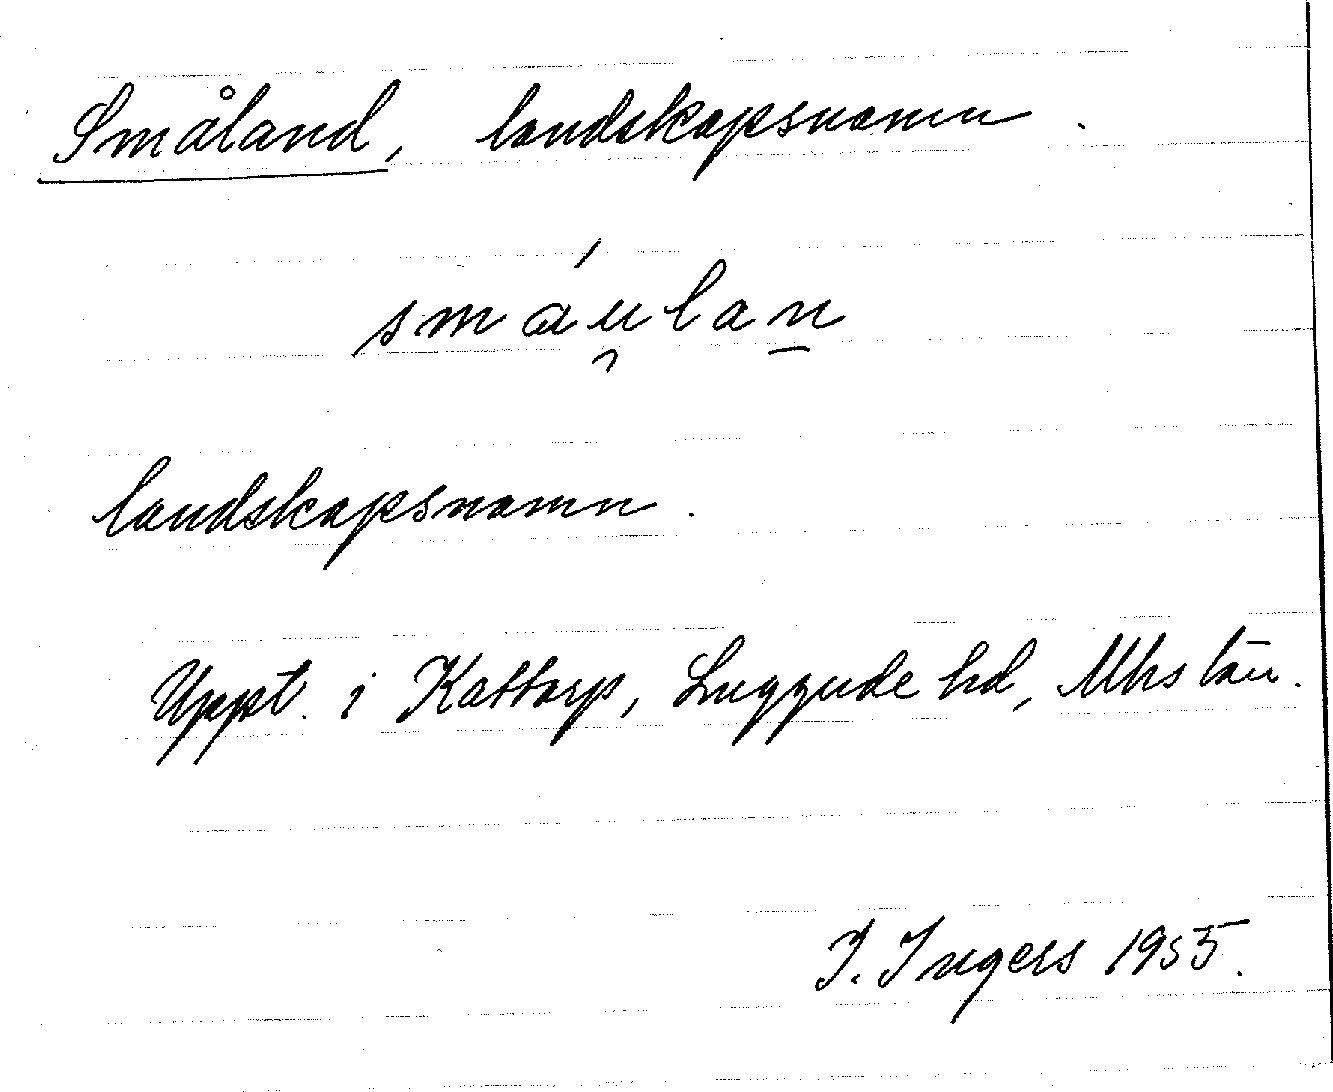 Småland, landskapsnamn.
smáu̯lan̲
landskapsnamn.
Uppt. i Kattarp, Luggude hd, Mhs län.
I. Ingers 1955.